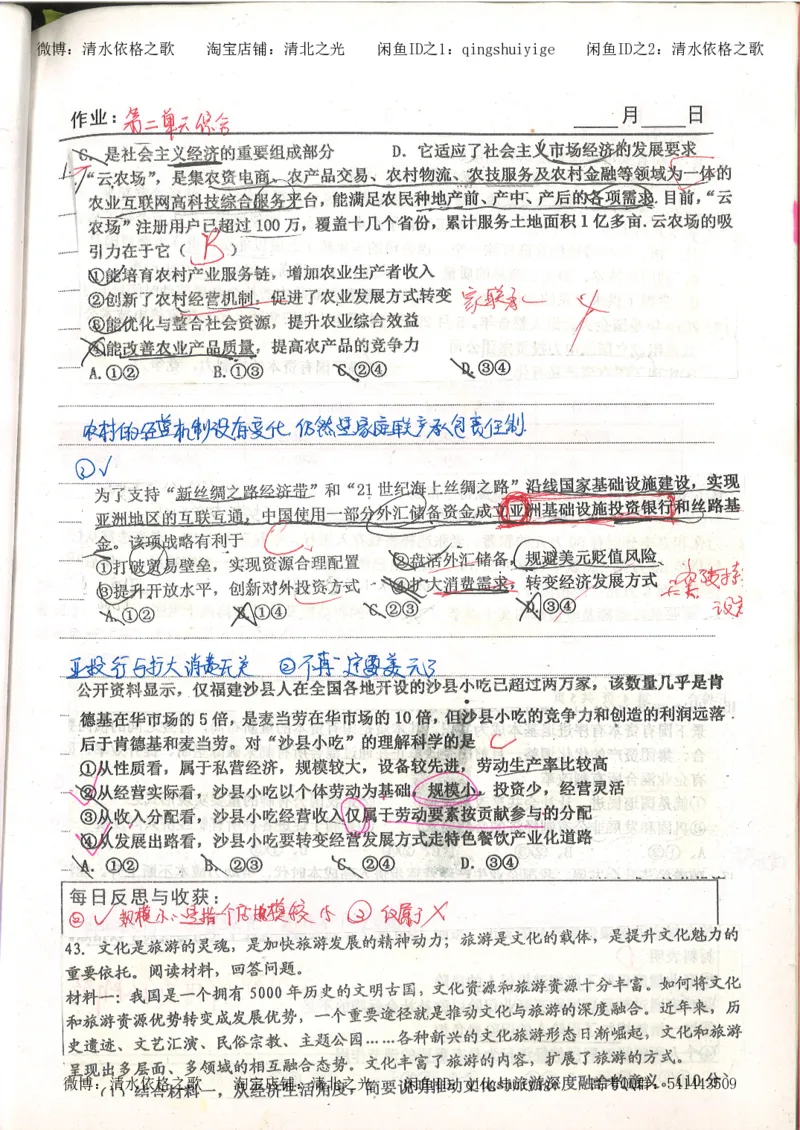 微博：清水依格之歌 淘宝店铺：清北之光 闲鱼ID之1：qingshuiyige 闲鱼ID之2：清水依格之歌
作业：第二单元综合 月 日
C．是社会主义经济的重要组成部分 D．它适应了社会主义市场经济的发展要求
“云农场”，是集农资电商、农产品交易、农村物流、农技服务及农村金融等领域为一体的
农业互联网高科技综合服务平台，能满足农民种地产前、产中、产后的各项需求.目前，“云
农场”注册用户已超过100万，覆盖十几个省份，累计服务土地面积1亿多亩.云农场的吸
引力在于它（ B ）
①能培育农村产业服务链，增加农业生产者收入
②创新了农村经营机制，促进了农业发展方式转变 家联承
③能优化与整合社会资源，提升农业综合效益
④能改善农业产品质量，提高农产品的竞争力
A.①② B.①③ C.②④ D.③④
农村的经营机制没有变化 仍然是家庭联产承包责任制.
②√
为了支持“新丝绸之路经济带”和“21世纪海上丝绸之路”沿线国家基础设施建设，实现
亚洲地区的互联互通，中国使用一部分外汇储备资金成立亚洲基础设施投资银行和丝路基
金。该项战略有利于 C
①打破贸易壁垒，实现资源合理配置 ②盘活外汇储备，规避美元贬值风险
③提升开放水平，创新对外投资方式 ④扩大消费需求，转变经济发展方式
A.①② B.①④ C.②③ D.③④
亚投行与扩大消费无关 ②不再一定要美元了
公开资料显示，仅福建沙县人在全国各地开设的沙县小吃已超过两万家，该数量几乎是肯
德基在华市场的5倍，是麦当劳在华市场的10倍，但沙县小吃的竞争力和创造的利润远落
后于肯德基和麦当劳。对“沙县小吃”的理解科学的是 C
①从性质看，属于私营经济，规模较大，设备较先进，劳动生产率比较高
②从经营实际看，沙县小吃以个体劳动为基础，规模小，投资少，经营灵活
③从收入分配看，沙县小吃经营收入仅属于劳动要素按贡献参与的分配
④从发展出路看，沙县小吃要转变经营发展方式走特色餐饮产业化道路
A. ①② B. ②③ C. ②④ D. ③④
每日反思与收获：
② √ 规模小：是指一个店规模较小 ③ 仅属于×
43. 文化是旅游的灵魂，是加快旅游发展的精神动力；旅游是文化的载体，是提升文化魅力的
重要依托。阅读材料，回答问题。
材料一：我国是一个拥有5000年历史的文明古国，文化资源和旅游资源十分丰富。如何将文化
和旅游资源优势转变成发展优势，一个重要途径就是推动文化与旅游的深度融合。近年来，历
史遗迹、文艺汇演、民俗宗教、主题公园……各种新兴的文化旅游形态日渐崛起，文化和旅游
呈现出多层面、多领域的相互融合态势。文化丰富了旅游的内容，扩展了旅游的方式。
（1）结合材料一，从经济生活角度，简要说明推动文化与旅游深度融合的意义。（10分）
微博：清水依格之歌 淘宝店铺：清北之光